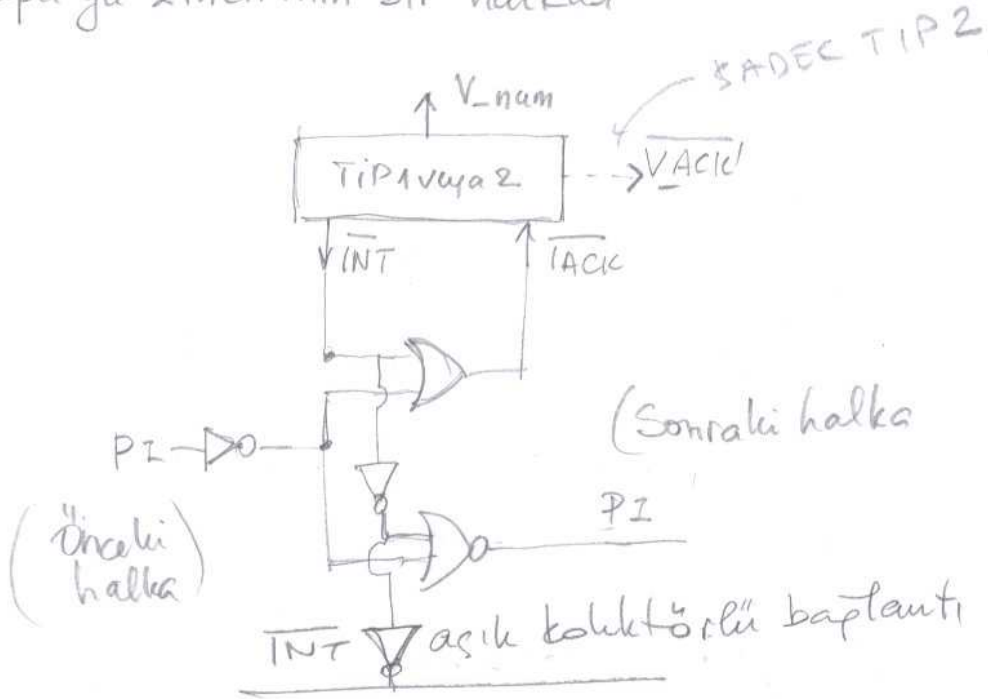 bir halkası
SADEC TIP 2
V_num
TİP 1 veya 2
VACK'
INT
IACK
(Sonraki halka
PI
PI
(Önceki
halka)
INT
açık kolektörlü bağlantı